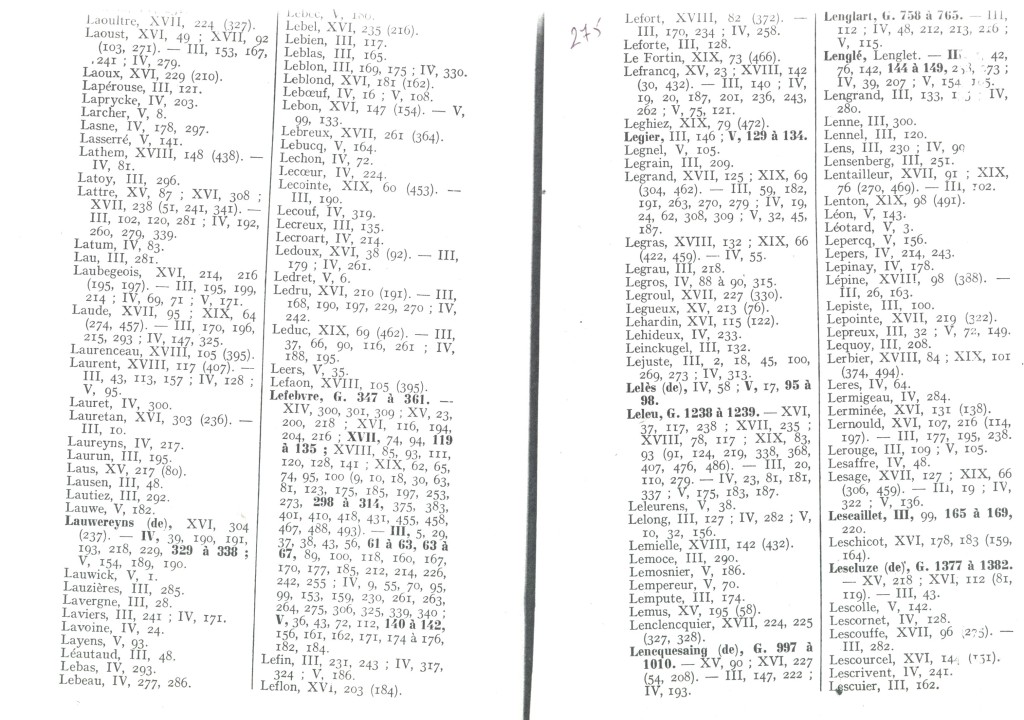 Laoultre, XVII, 224 (327).
Laoust, XVI, 49 ; XVII, 92
(103, 271). — III, 153, 167,
241 ; IV, 279.
Laoux, XVI, 229 (210).
Lapérouse, III, 121.
Laprycke, IV, 203.
Larcher, V, 8.
Lasne, IV, 178, 297.
Lasserré, V, 141.
Lathem, XVIII, 148 (438). —
IV, 81.
Latoy, III, 296.
Lattre, XV, 87 ; XVI, 308 ;
XVII, 238 (51, 241, 341). —
III, 102, 120, 281 ; IV, 192,
260, 279, 339.
Latum, IV, 83.
Lau, III, 281.
Laubegeois, XVI, 214, 216
(195, 197). — III, 195, 199,
214 ; IV, 69, 71 ; V, 171.
Laude, XVII, 95 ; XIX, 64
(274, 457). — III, 170, 196,
215, 293 ; IV, 147, 325.
Laurenceau, XVIII, 105 (395).
Laurent, XVIII, 117 (407). —
III, 43, 113, 157 ; IV, 128 ;
V, 95.
Lauret, IV, 300.
Lauretan, XVI, 303 (236). —
III, 10.
Laureyns, IV, 217.
Laurun, III, 195.
Laus, XV, 217 (80).
Lausen, III, 48.
Lautiez, III, 292.
Lauwe, V, 182.
Lauwereyns (de), XVI, 304
(237). — IV, 39, 190, 191,
193, 218, 229, 329 à 338 ;
V, 154, 189, 190.
Lauwick, V, 1.
Lauzières, III, 285.
Lavergne, III, 28.
Laviers, III, 241 ; IV, 171.
Lavoine, IV, 24.
Layens, V, 93.
Léautaud, III, 48.
Lebas, IV, 293.
Lebeau, IV, 277, 286.
Lebel, XVI, 235 (216).
Lebien, III, 117.
Leblas, III, 165.
Leblon, III, 169, 175 ; IV, 330.
Leblond, XVI, 181 (162).
Lebœuf, IV, 16 ; V, 108.
Lebon, XVI, 147 (154). — V,
99, 133.
Lebreux, XVII, 261 (364).
Lebucq, V, 164.
Lechon, IV, 72.
Lecœur, IV, 224.
Lecointe, XIX, 60 (453). —
III, 190.
Lecouf, IV, 319.
Lecreux, III, 135.
Lecroart, IV, 214.
Ledoux, XVI, 38 (92). — III,
179 ; IV, 261.
Ledret, V, 6.
Ledru, XVI, 210 (191). — III,
168, 190, 197, 229, 270 ; IV,
242.
Leduc, XIX, 69 (462). — III,
37, 66, 90, 116, 261 ; IV,
188, 195.
Leers, V, 35.
Lefaon, XVIII, 105 (395).
Lefebvre, G. 347 à 361. —
XIV, 300, 301, 309 ; XV, 23,
200, 218 ; XVI, 116, 194,
204, 216 ; XVII, 74, 94, 119
à 135 ; XVIII, 85, 93, 111,
120, 128, 141 ; XIX, 62, 65,
74, 95, 100 (9, 10, 18, 30, 63,
81, 123, 175, 185, 197, 253,
273, 298 à 314, 375, 383,
401, 410, 418, 431, 455, 458,
467, 488, 493). — III, 5, 29,
37, 38, 43, 56, 61 à 63, 63 à
67, 89, 100, 118, 160, 167,
170, 177, 185, 212, 214, 226,
242, 255 ; IV, 9, 55, 70, 95,
99, 153, 159, 230, 261, 263,
264, 275, 306, 325, 339, 340 ;
V, 36, 43, 72, 112, 140 à 142,
156, 161, 162, 171, 174 à 176,
182, 184.
Lefin, III, 231, 243 ; IV, 317,
324 ; V, 186.
Leflon, XVI, 203 (184).
275
Lefort, XVIII, 82 (372). —
III, 170, 234 ; IV, 258.
Leforte, III, 128.
Le Fortin, XIX, 73 (466).
Lefrancq, XV, 23 ; XVIII, 142
(30, 432). — III, 140 ; IV,
19, 20, 187, 201, 236, 243,
262 ; V, 75, 121.
Leghiez, XIX, 79 (472).
Legier, III, 146 ; V, 129 à 134.
Legnel, V, 105.
Legrain, III, 209.
Legrand, XVII, 125 ; XIX, 69
(304, 462). — III, 59, 182,
191, 263, 270, 279 ; IV, 19,
24, 62, 308, 309 ; V, 32, 45,
187.
Legras, XVIII, 132 ; XIX, 66
(422, 459). — IV, 55.
Legrau, III, 218.
Legros, IV, 88 à 90, 315.
Legroul, XVII, 227 (330).
Legueux, XV, 213 (76).
Lehardin, XVI, 115 (122).
Lehideux, IV, 233.
Leinckugel, III, 132.
Lejuste, III, 2, 18, 45, 100,
269, 273 ; IV, 313.
Lelès (de), IV, 58 ; V, 17, 95 à
98.
Leleu, G. 1238 à 1239. — XVI,
37, 117, 238 ; XVII, 235 ;
XVIII, 78, 117 ; XIX, 83,
93 (91, 124, 219, 338, 368,
407, 476, 486). — III, 20,
110, 279. — IV, 23, 81, 181,
337 ; V, 175, 183, 187.
Leleurens, V, 38.
Lelong, III, 127 ; IV, 282 ; V,
10, 32, 156.
Lemielle, XVIII, 142 (432).
Lemoce, III, 290.
Lemosnier, V, 186.
Lempereur, V, 70.
Lempute, III, 174.
Lemus, XV, 195 (58).
Lenclencquier, XVII, 224, 225
(327, 328).
Lencquesaing (de), G. 997 à
1010. — XV, 90 ; XVI, 227
(54, 208). — III, 147, 222 ;
IV, 193.
Lenglart, G. 758 à 765. — III,
112 ; IV, 48, 212, 213, 216 ;
V, 115.
Lenglé, Lenglet. — 42,
76, 142, 144 à 149,
IV, 39, 207 ; V, 154
Lengrand, III, 133, IV,
280.
Lenne, III, 300.
Lennel, III, 120.
Lens, III, 230 ; IV, 90
Lensenberg, III, 251.
Lentailleur, XVII, 91 ; XIX,
76 (270, 469). — III, 102.
Lenton, XIX, 98 (491).
Léon, V, 143.
Léotard, V, 3.
Lepercq, V, 156.
Lepers, IV, 214, 243.
Lepinay, IV, 178.
Lépine, XVIII, 98 (388). —
III, 26, 163.
Lepiste, III, 100.
Lepointe, XVII, 219 (322).
Lepreux, III, 32 ; V, 72, 149.
Lequoy, III, 208.
Lerbier, XVIII, 84 ; XIX, 101
(374, 494).
Leres, IV, 64.
Lermigeau, IV, 284.
Lerminée, XVI, 131 (138).
Lernould, XVI, 107, 216 (114,
197). — III, 177, 195, 238.
Lerouge, III, 109 ; V, 105.
Lesaffre, IV, 48.
Lesage, XVII, 127 ; XIX, 66
(306, 459). — III, 19 ; IV,
322 ; V, 136.
Lescaillet, III, 99, 165 à 169,
220.
Leschicot, XVI, 178, 183 (159,
164).
Leseluze (de), G. 1377 à 1382.
— XV, 218 ; XVI, 112 (81,
119). — III, 43.
Lescolle, V, 142.
Lescornet, IV, 128.
Lescouffe, XVII, 96 (275). —
III, 282.
Lescourcel, XVI,
Lescrivent, IV, 241.
Lescuier, III, 162.